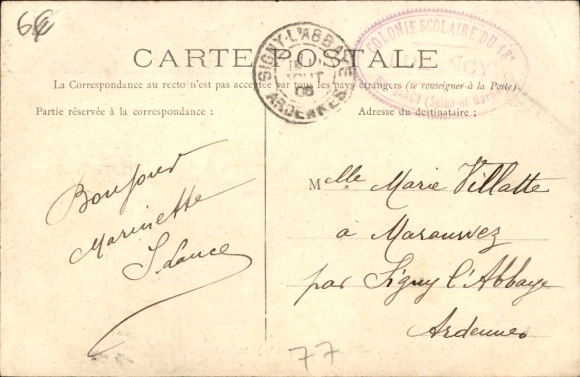 6€
CARTE POSTALE
SIGNY-L'ABBAYE
AOUT
08
ARDENNES
COLONIE SCOLAIRE DU 18e
La Correspondance au recto n'est pas acceptée par tous les pays étrangers (se renseigner à la Poste)
Partie réservée à la correspondance :
Adresse du destinataire :
Bonjour
Marinette
S. Lance
Melle Marie Villatte
à Maranwez
par Signy l'Abbaye
Ardennes
77